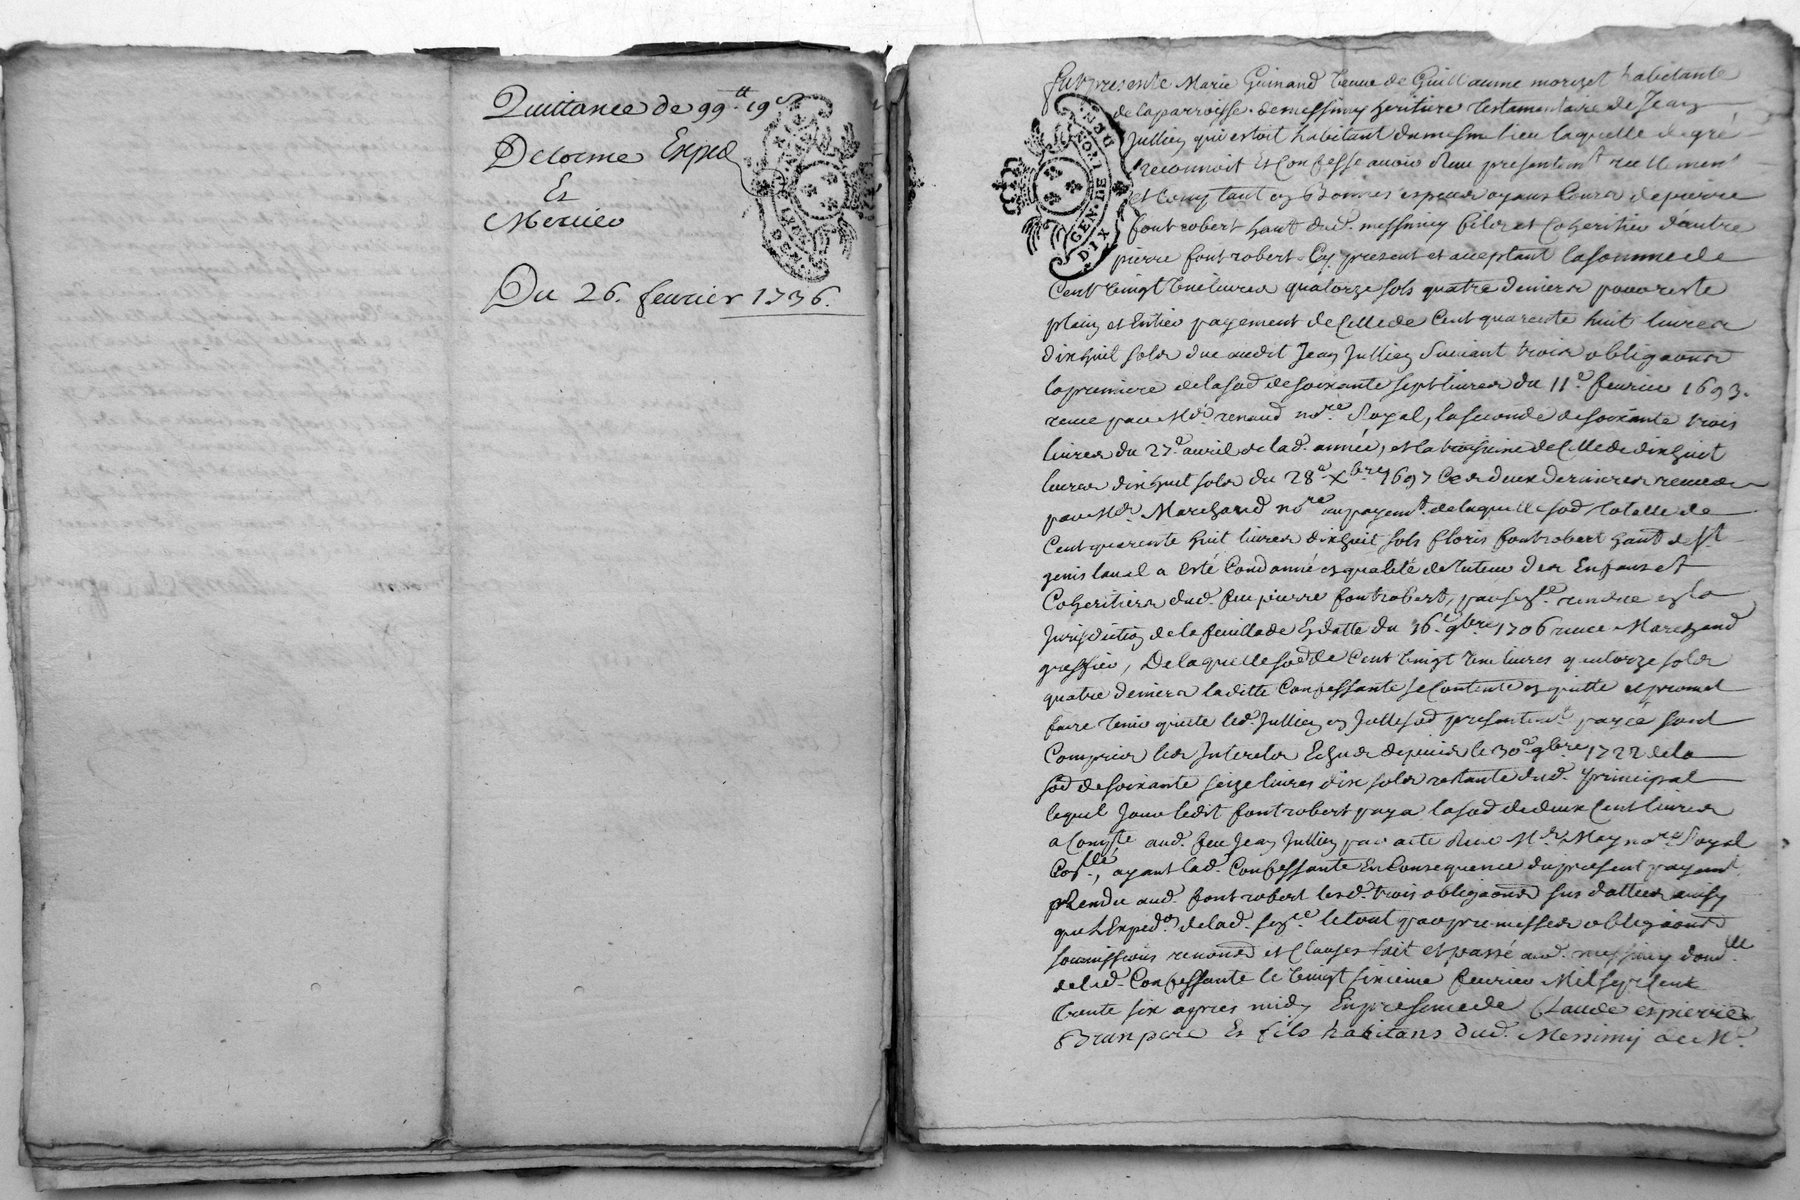 Quittance de 99 ᵗᵗ 19 s
Delorme Exped
Et
Mercier
Du 26. fevrier 1736.
GEN. DE LYON
DIX DEN.
Fut presente Marie Guinand veuve de Guillaume morizet habitante
de la parroisse de messimy heritiere testamentaire de Jean
Jullien qui estoit habitant du mesme lieu laquelle de gré
reconnoit et Confesse avoir Reçu presentemt. reellement
et Comptant en Bonnes especes ayans Cours de pierre
fontrobert hant dud. messimy fils et Coheritier d'autre
pierre fontrobert Cy present et acceptant la somme de
Cent vingt une livres quatorze sols quatre deniers pour reste
plain et Entier payement de Celle de Cent quarente huit livres
dixhuit sols due audit Jean Jullien Suivant trois obligaons
la premiere de la sod de soixante sept livres du 11e. fevrier 1693.
receue par Me. renaud nore. Royal, la seconde de soixante trois
livres du 27e. avril de lad. année, et la troisieme de Celle de dixhuit
livres dixhuit sols du 28e. Xbre 1697 Ces deux dernieres receues
par Me. Marchand nore en payemt. de laquelle sod totalle de
Cent quarente huit livres dixhuit sols floris fontrobert hant de St
genis laval a esté Condonné en qualité de tuteur des Enfans et
Coheritiers dud. feu pierre fontrobert, par sence. rendue en la
Jurisdiction de la feuillade En datte du 16e. 9bre 1706 receue Marchand
greffier, De laquelle sod de Cent vingt une livres quatorze sols
quatre deniers laditte Confessante se Contente en quitte et promet
faire tenir quitte led. Jullien en Jcelle sod presentemt. payée sont
Compris les Interets Echus depuis le 30e. 9bre 1722 de la
sod de soixante seize livres dix sols restante dud. principal
lequel Jour ledit fontrobert paya la sod de deux Cent livres
a Compte aud. feu Jean Jullien par acte Receu Me. May nore Royal
, ayant lad. Confessante En Consequence du present payemt.
Rendu aud. fontrobert lesd. trois obligaons sus dattées ainsy
que l'Expedon de lad. sence le tout par promesses obligaons
soumissions renons et Clauses fait et passé aud. messimy domlle
de lad. Confessante le vingt sixieme fevrier Mil sept Cent
trente six apres midy En presence de Claude et pierre
Brun pere Et fils habitans dud. Messimy de Me.